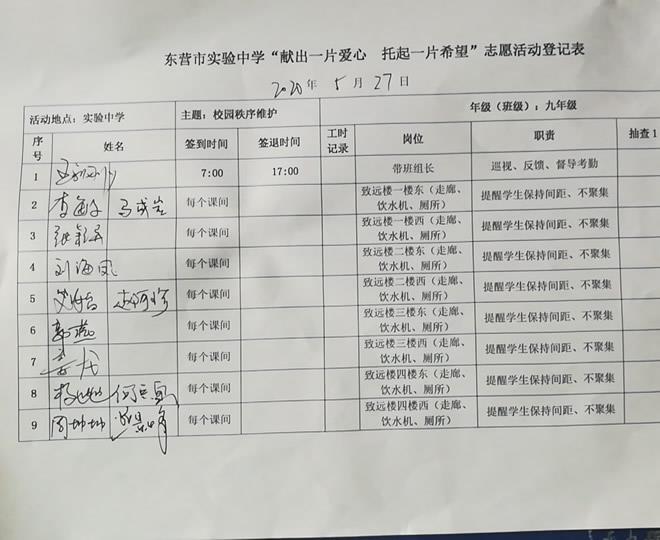 东营市实验中学“献出一片爱心 托起一片希望”志愿活动登记表
2020年 5月 27日
活动地点：实验中学 主题：校园秩序维护 年级（班级）：九年级
序号 姓名 签到时间 签退时间 工时记录 岗位 职责 抽查1
1 7:00 17:00 带班组长 巡视、反馈、督导考勤
2 每个课间 致远楼一楼东（走廊、饮水机、厕所） 提醒学生保持间距、不聚集
3 每个课间 致远楼一楼西（走廊、饮水机、厕所） 提醒学生保持间距、不聚集
4 刘海凤 每个课间 致远楼二楼东（走廊、饮水机、厕所） 提醒学生保持间距、不聚集
5 每个课间 致远楼二楼西（走廊、饮水机、厕所） 提醒学生保持间距、不聚集
6 郭燕 每个课间 致远楼三楼东（走廊、饮水机、厕所） 提醒学生保持间距、不聚集
7 每个课间 致远楼三楼西（走廊、饮水机、厕所） 提醒学生保持间距、不聚集
8 每个课间 致远楼四楼东（走廊、饮水机、厕所） 提醒学生保持间距、不聚集
9 周坤坤 每个课间 致远楼四楼西（走廊、饮水机、厕所） 提醒学生保持间距、不聚集